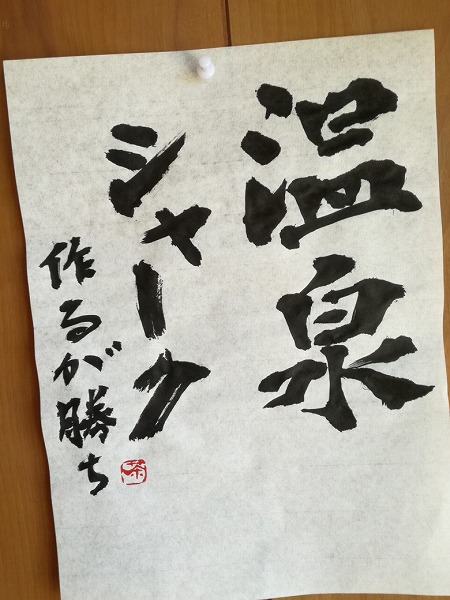 温泉
シャーク
作るが勝ち
茶